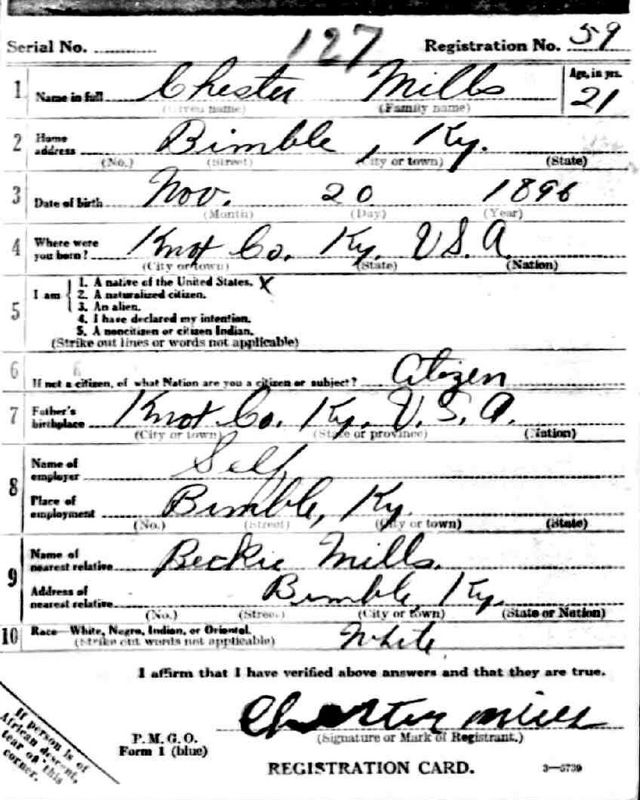 Serial No. 127 Registration No. 59
1 Name in full Chester Mills Age, in yrs. 21
(Given name) (Family name)
2 Home address Bimble, Ky.
(No.) (Street) (City or town) (State)
3 Date of birth Nov. 20 1896
(Month) (Day) (Year)
4 Where were you born? Knot Co. Ky. U.S.A.
(City or town) (State) (Nation)
5 I am
1. A native of the United States. X
2. A naturalized citizen.
3. An alien.
4. I have declared my intention.
5. A noncitizen or citizen Indian.
(Strike out lines or words not applicable)
6 If not a citizen, of what Nation are you a citizen or subject? Citizen
7 Father's birthplace Knot Co. Ky. U.S.A.
(City or town) (State or province) (Nation)
8 Name of employer Self
Place of employment Bimble, Ky.
(No.) (Street) (City or town) (State)
9 Name of nearest relative Beckie Mills.
Address of nearest relative Bimble Ky.
(No.) (Street) (City or town) (State or Nation)
10 Race—White, Negro, Indian, or Oriental. White
(Strike out words not applicable)
I affirm that I have verified above answers and that they are true.
Chester Mills
(Signature or Mark of Registrant.)
P.M.G.O.
Form 1 (blue)
REGISTRATION CARD. 3—5739
If person is of
African descent,
tear off this
corner.